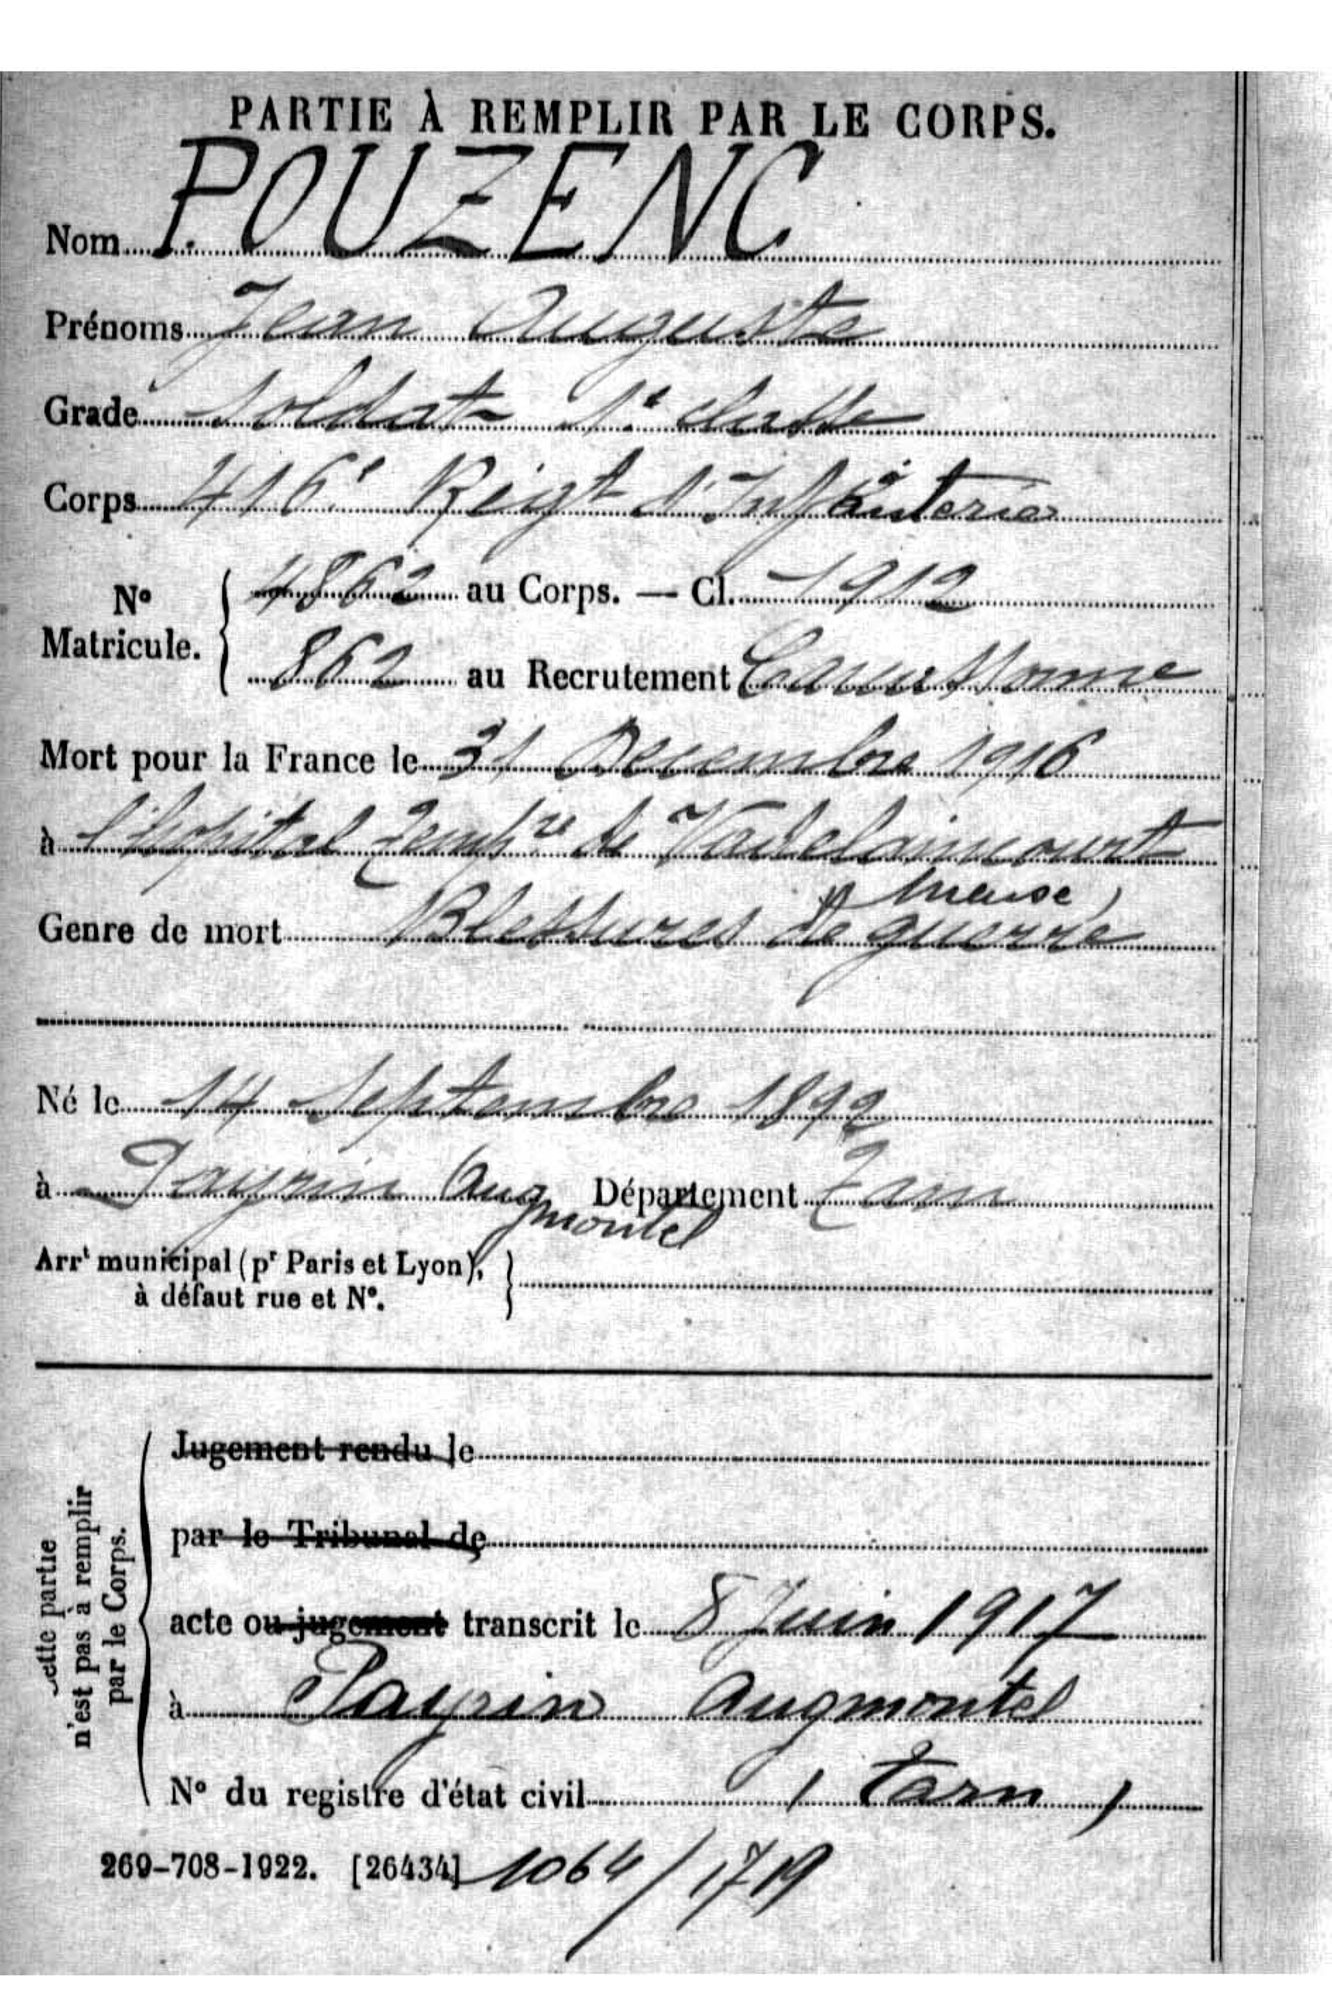 PARTIE À REMPLIR PAR LE CORPS.
Nom POUZENC
Prénoms Jean Auguste
Grade Soldat 1e classe
Corps 416e Régt d'Infanterie
No Matricule. 4862 au Corps. — Cl. 1912
862 au Recrutement Carcassonne
Mort pour la France le 31 Decembre 1916
à l'hopital Tempre de Vadelaincourt
(Meuse)
Genre de mort Blessures de guerre
Né le 14 Septembre 1892
à Payrin Augmontel Département Tarn
Arrt municipal (pr Paris et Lyon),
à défaut rue et No.
Cette partie
n'est pas à remplir
par le Corps.
Jugement rendu le
par le Tribunal de
acte ou jugement transcrit le 8 Juin 1917
à Payrin Augmontel
No du registre d'état civil (Tarn)
269-708-1922. [26434] 1064/1719